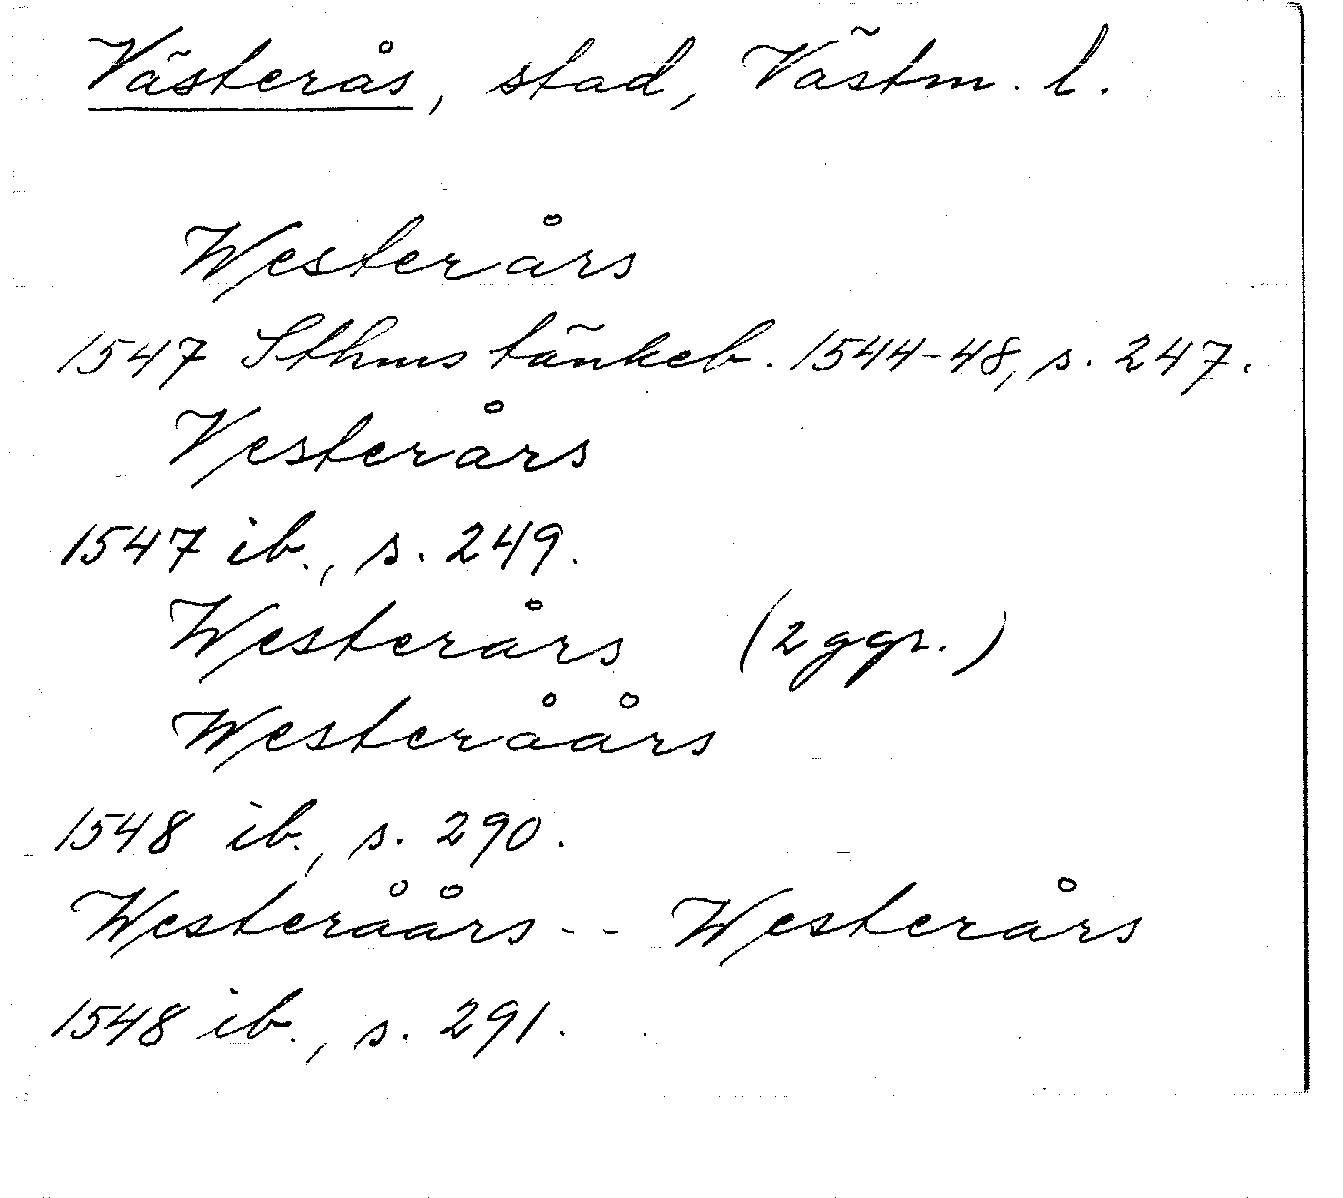 Västerås, stad, Västm. l.
Westerårs
1547 Sthms tänkeb. 1544-48, s. 247.
Vesterårs
1547 ib., s. 249.
Westerårs (2 ggr.)
Westeråårs
1548 ib., s. 290.
Westeråårs -- Westerårs
1548 ib., s. 291.